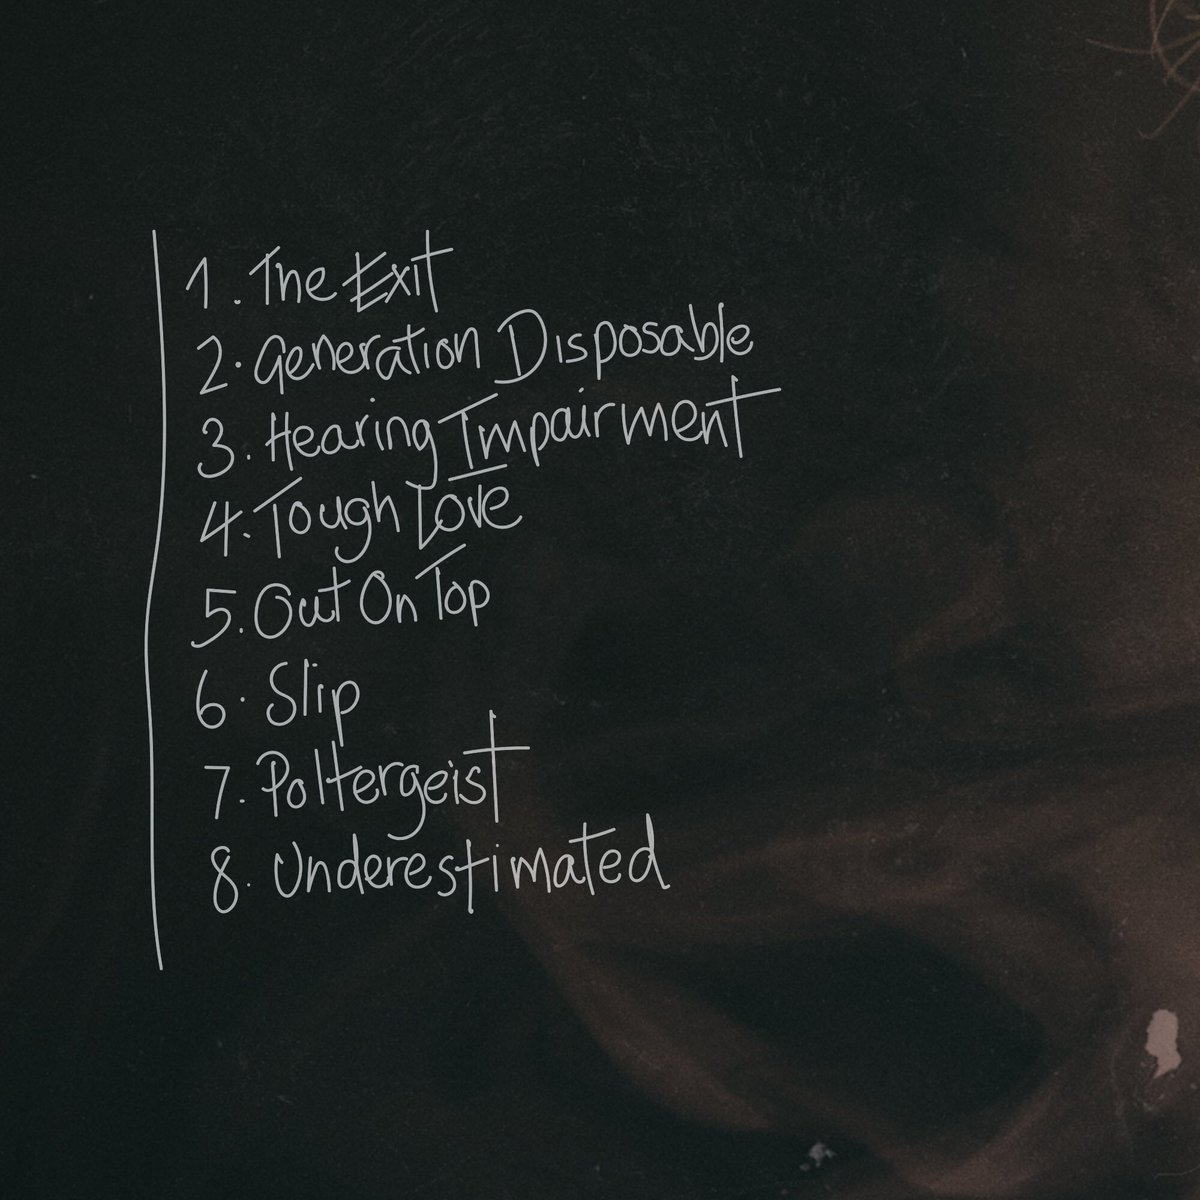 1. The Exit
2. Generation Disposable
3. Hearing Impairment
4. Tough Love
5. Out On Top
6. Slip
7. Poltergeist
8. Underestimated